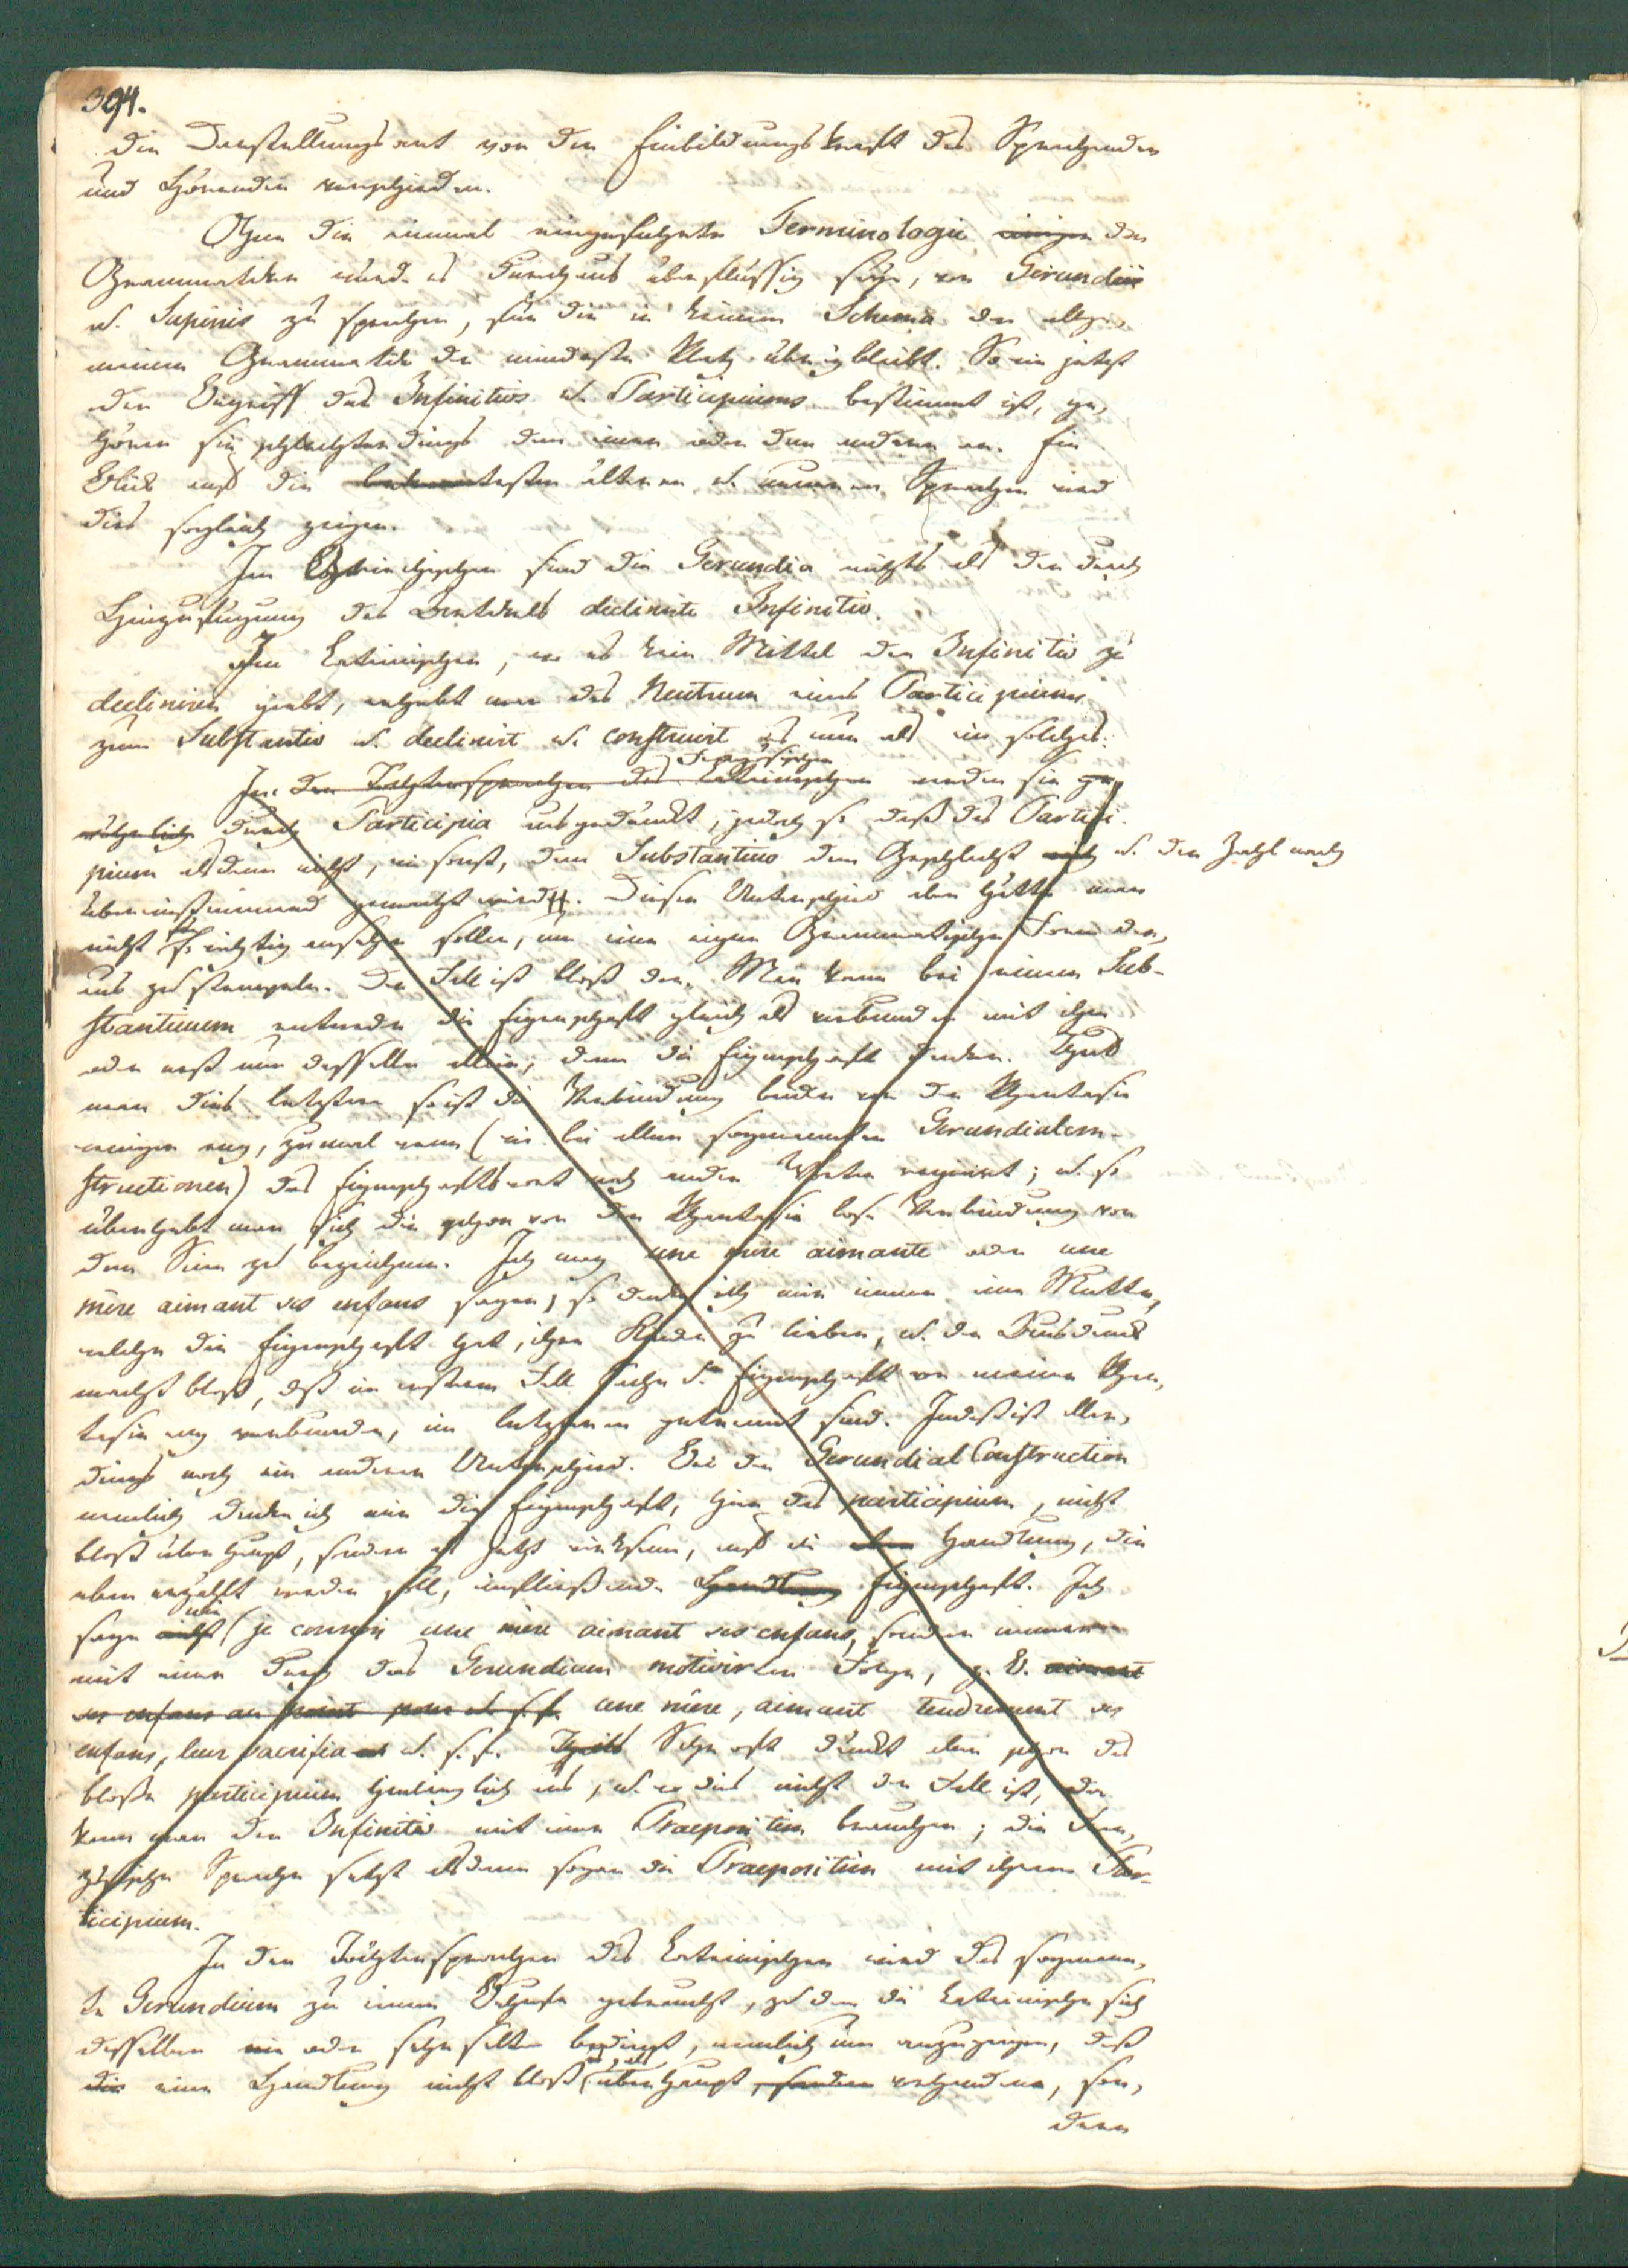 394.
die Darstellungsart von der Einbildungskraft des Sprechenden
und Hörenden verschieden.
Ohne die einmal eingeführte Terminologie einiger der
Grammatiken würde es durchaus überflüssig seyn, von Gerundiis
u. Supinis zu sprechen, für die in keinem Schema der allge-
meinen Grammatik der mindeste Platz übrig bleibt. So wie jetzt
der Begriff des Infinitivs u. Participiums bestimmt ist, ge-
hören sie schlechterdings dem einen oder dem andern an. Ein
Blick auf die bekanntesten älteren u. neueren Sprachen wird
dies sogleich zeigen.
Im Griechischen sind die Gerundia nichts als der durch
Hinzufügung des Artikels declinirte Infinitiv.
Im Lateinischen, wo es kein Mittel den Infinitiv zu
decliniren giebt, erhebt man das Neutrum eines Participiums
zum Substantiv u. declinirt u. construirt es nun als ein solches.
In den Töchtersprachen des Lateinischen Französischen werden sie ge-
wöhnlich durch Participia ausgedruckt, jedoch so daß das Partici-
pium alsdann nicht, wie sonst, dem Substantivo dem Geschlecht nach u. der Zahl nach
übereinstimmend gemacht wird. Diesen Unterschied aber hätte man
nicht für so wichtig ansehn sollen, um eine eigne Grammatische Form dar-
aus zu stempeln. Der Fall ist bloß der. Man kann bei einem Sub-
stantivum entweder die Eigenschaft gleich als verbunden mit ihm
oder erst nur dasselbe allein, dann die Eigenschaft denken. Thut
man dies letztere so ist die Verbindung beider von der Phantasie
weniger eng, zumal wenn (wie bei allen sogenannten Gerundialcon-
structionen) das Eigenschaftswort noch andre Worte regiert; u. so
überhebt man sich die schon von der Phantasie lose Verbindung von
dem Sinn zu bezeichnen. Ich mag une mère aimante oder une
mère aimant ses enfans sagen, so denke ich mir immer eine Mutter,
welche die Eigenschaft hat, ihre Kinder zu lieben, u. der Ausdruck
macht bloß, daß im ersteren Fall Sache u. Eigenschaft von meiner Phan-
tasie eng verbunden, im letzteren getrennt sind. Indeß ist aller-
dings noch ein anderer Unterschied. Bei der Gerundial Construction
nemlich denke ich mir die Eigenschaft, hier das participium, nicht
bloß überhaupt, sondern als jetzt wirksam, auf die eben Handlung, die
eben erzählt werden soll, einfließende Handlung Eigenschaft. Ich
sage nicht nie (je connois une mère aimant ses enfans, sondern immer
mit einer durch das Gerundium motivirten Folge, z. B. aimant
ses enfans au point pour u. s. f. une mère, aimant tendrement ses
enfans, leur sacrifia u. s. f. Theils Sehr oft druckt aber schon das
bloße participium hinlänglich aus, u. wo dies nicht der Fall ist, da
kann man den Infinitiv mit einer Praeposition brauchen; die Fran-
zösische Sprache setzt alsdann sogar die Praeposition mit ihrem Par-
ticipium.
In den Töchtersprachen des Lateinischen wird das sogenann-
te Gerundium zu einem Behufe gebraucht, zu dem die Lateinische sich
desselben nie oder sehr selten bedient, nemlich um anzuzeigen, daß
die eine Handlung nicht bloß überhaupt, sondern vorhanden, son-
dern